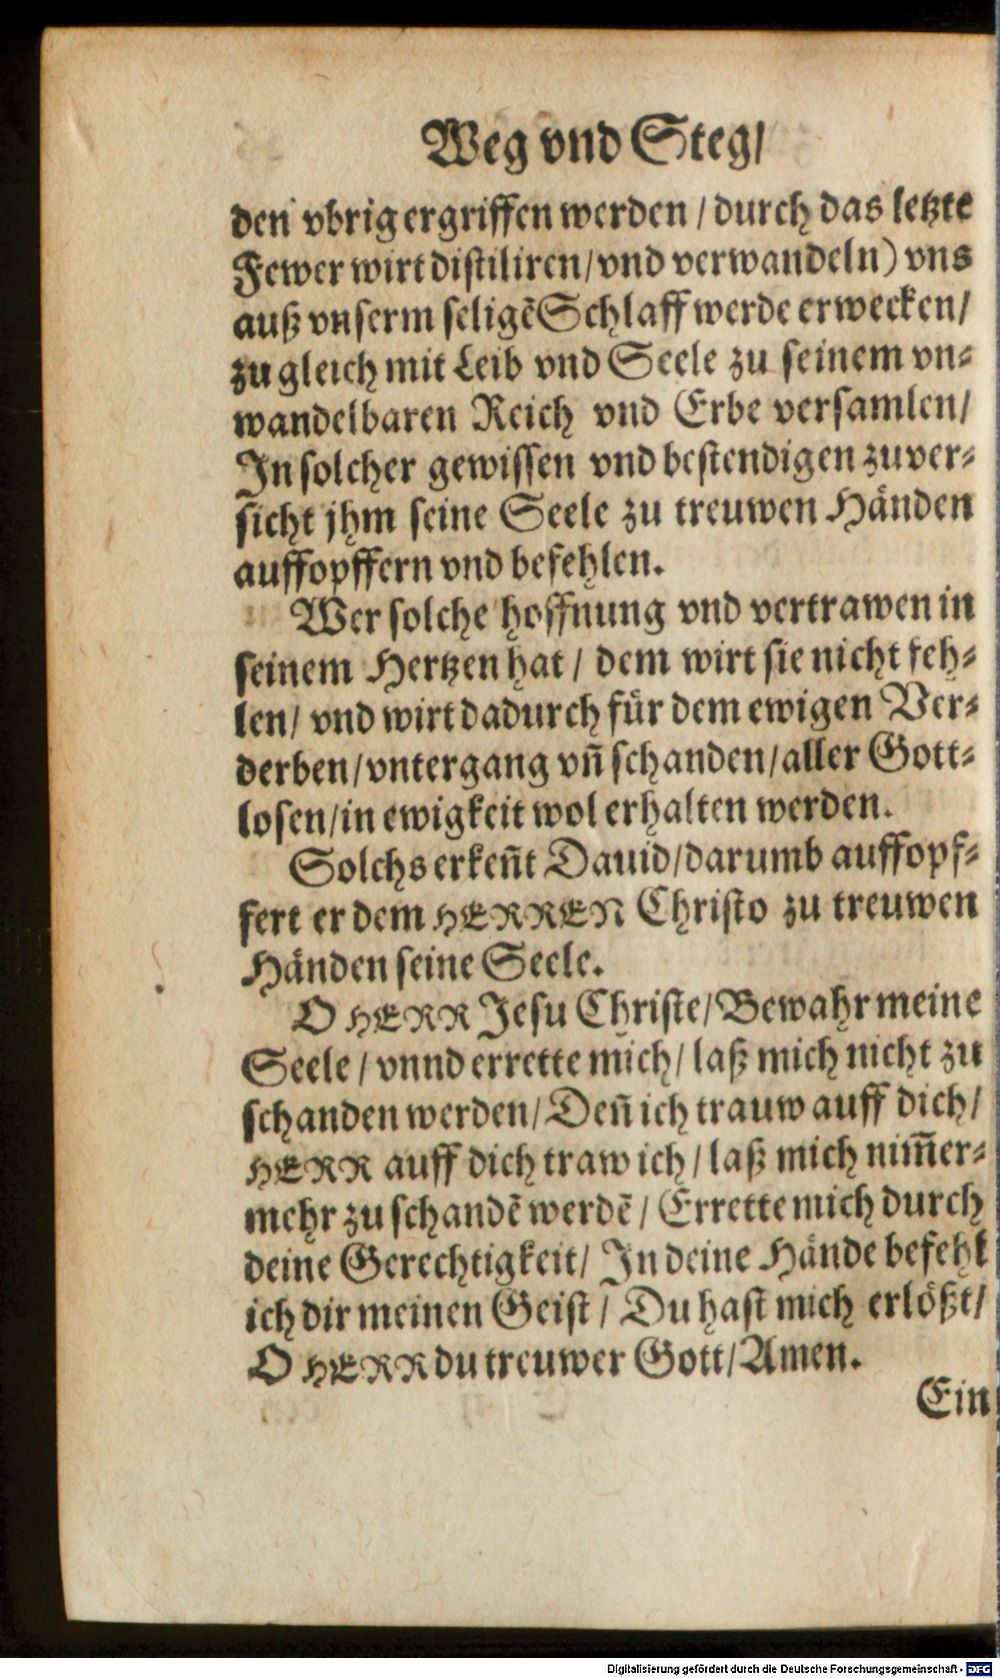 Weg vnd Steg/
den vbrig ergriffen werden / durch das letzte
Fewer wirt distiliren/vnd verwandeln) vns
auß vnserm seligẽ Schlaff werde erwecken/
zu gleich mit Leib vnd Seele zu seinem vn-
wandelbaren Reich vnd Erbe versamlen/
In solcher gewissen vnd bestendigen zuver-
sicht jhm seine Seele zu treuwen Händen
auffopffern vnd befehlen.
Wer solche hoffnung vnd vertrawen in
seinem Hertzen hat / dem wirt sie nicht feh-
len/ vnd wirt dadurch für dem ewigen Ver-
derben/vntergang vñ schanden/aller Gott-
losen/in ewigkeit wol erhalten werden.
Solchs erkeñt Dauid/darumb auffopf-
fert er dem HERREN Christo zu treuwen
Händen seine Seele.
O HERR Jesu Christe/Bewahr meine
Seele / vnnd errette mich/ laß mich nicht zu
schanden werden/ Deñ ich trauw auff dich/
HERR auff dich traw ich / laß mich nim̃er-
mehr zu schandẽ werdẽ / Errette mich durch
deine Gerechtigkeit/ In deine Hände befehl
ich dir meinen Geist / Du hast mich erlößt/
O HERR du treuwer Gott/Amen.
Ein
Digitalisierung gefördert durch die Deutsche Forschungsgemeinschaft - DFG